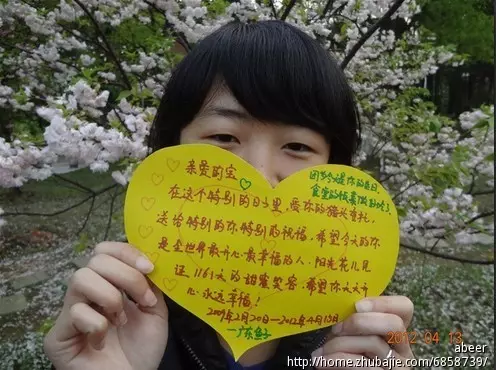 亲爱的宝
你的生日,
在这个特别的日子里,爱你的猫头委托,
送给特别的你特别的祝福,希望今天的你
是全世界最开心,最幸福的人.阳光花儿见
证,1161天的甜蜜笑容,希望你天天开
心,永远幸福!
2009年2月20日—2012年4月15日
—广东鱼子
2012 04 13
abeer
http://home.zhubajie.com/6858739/